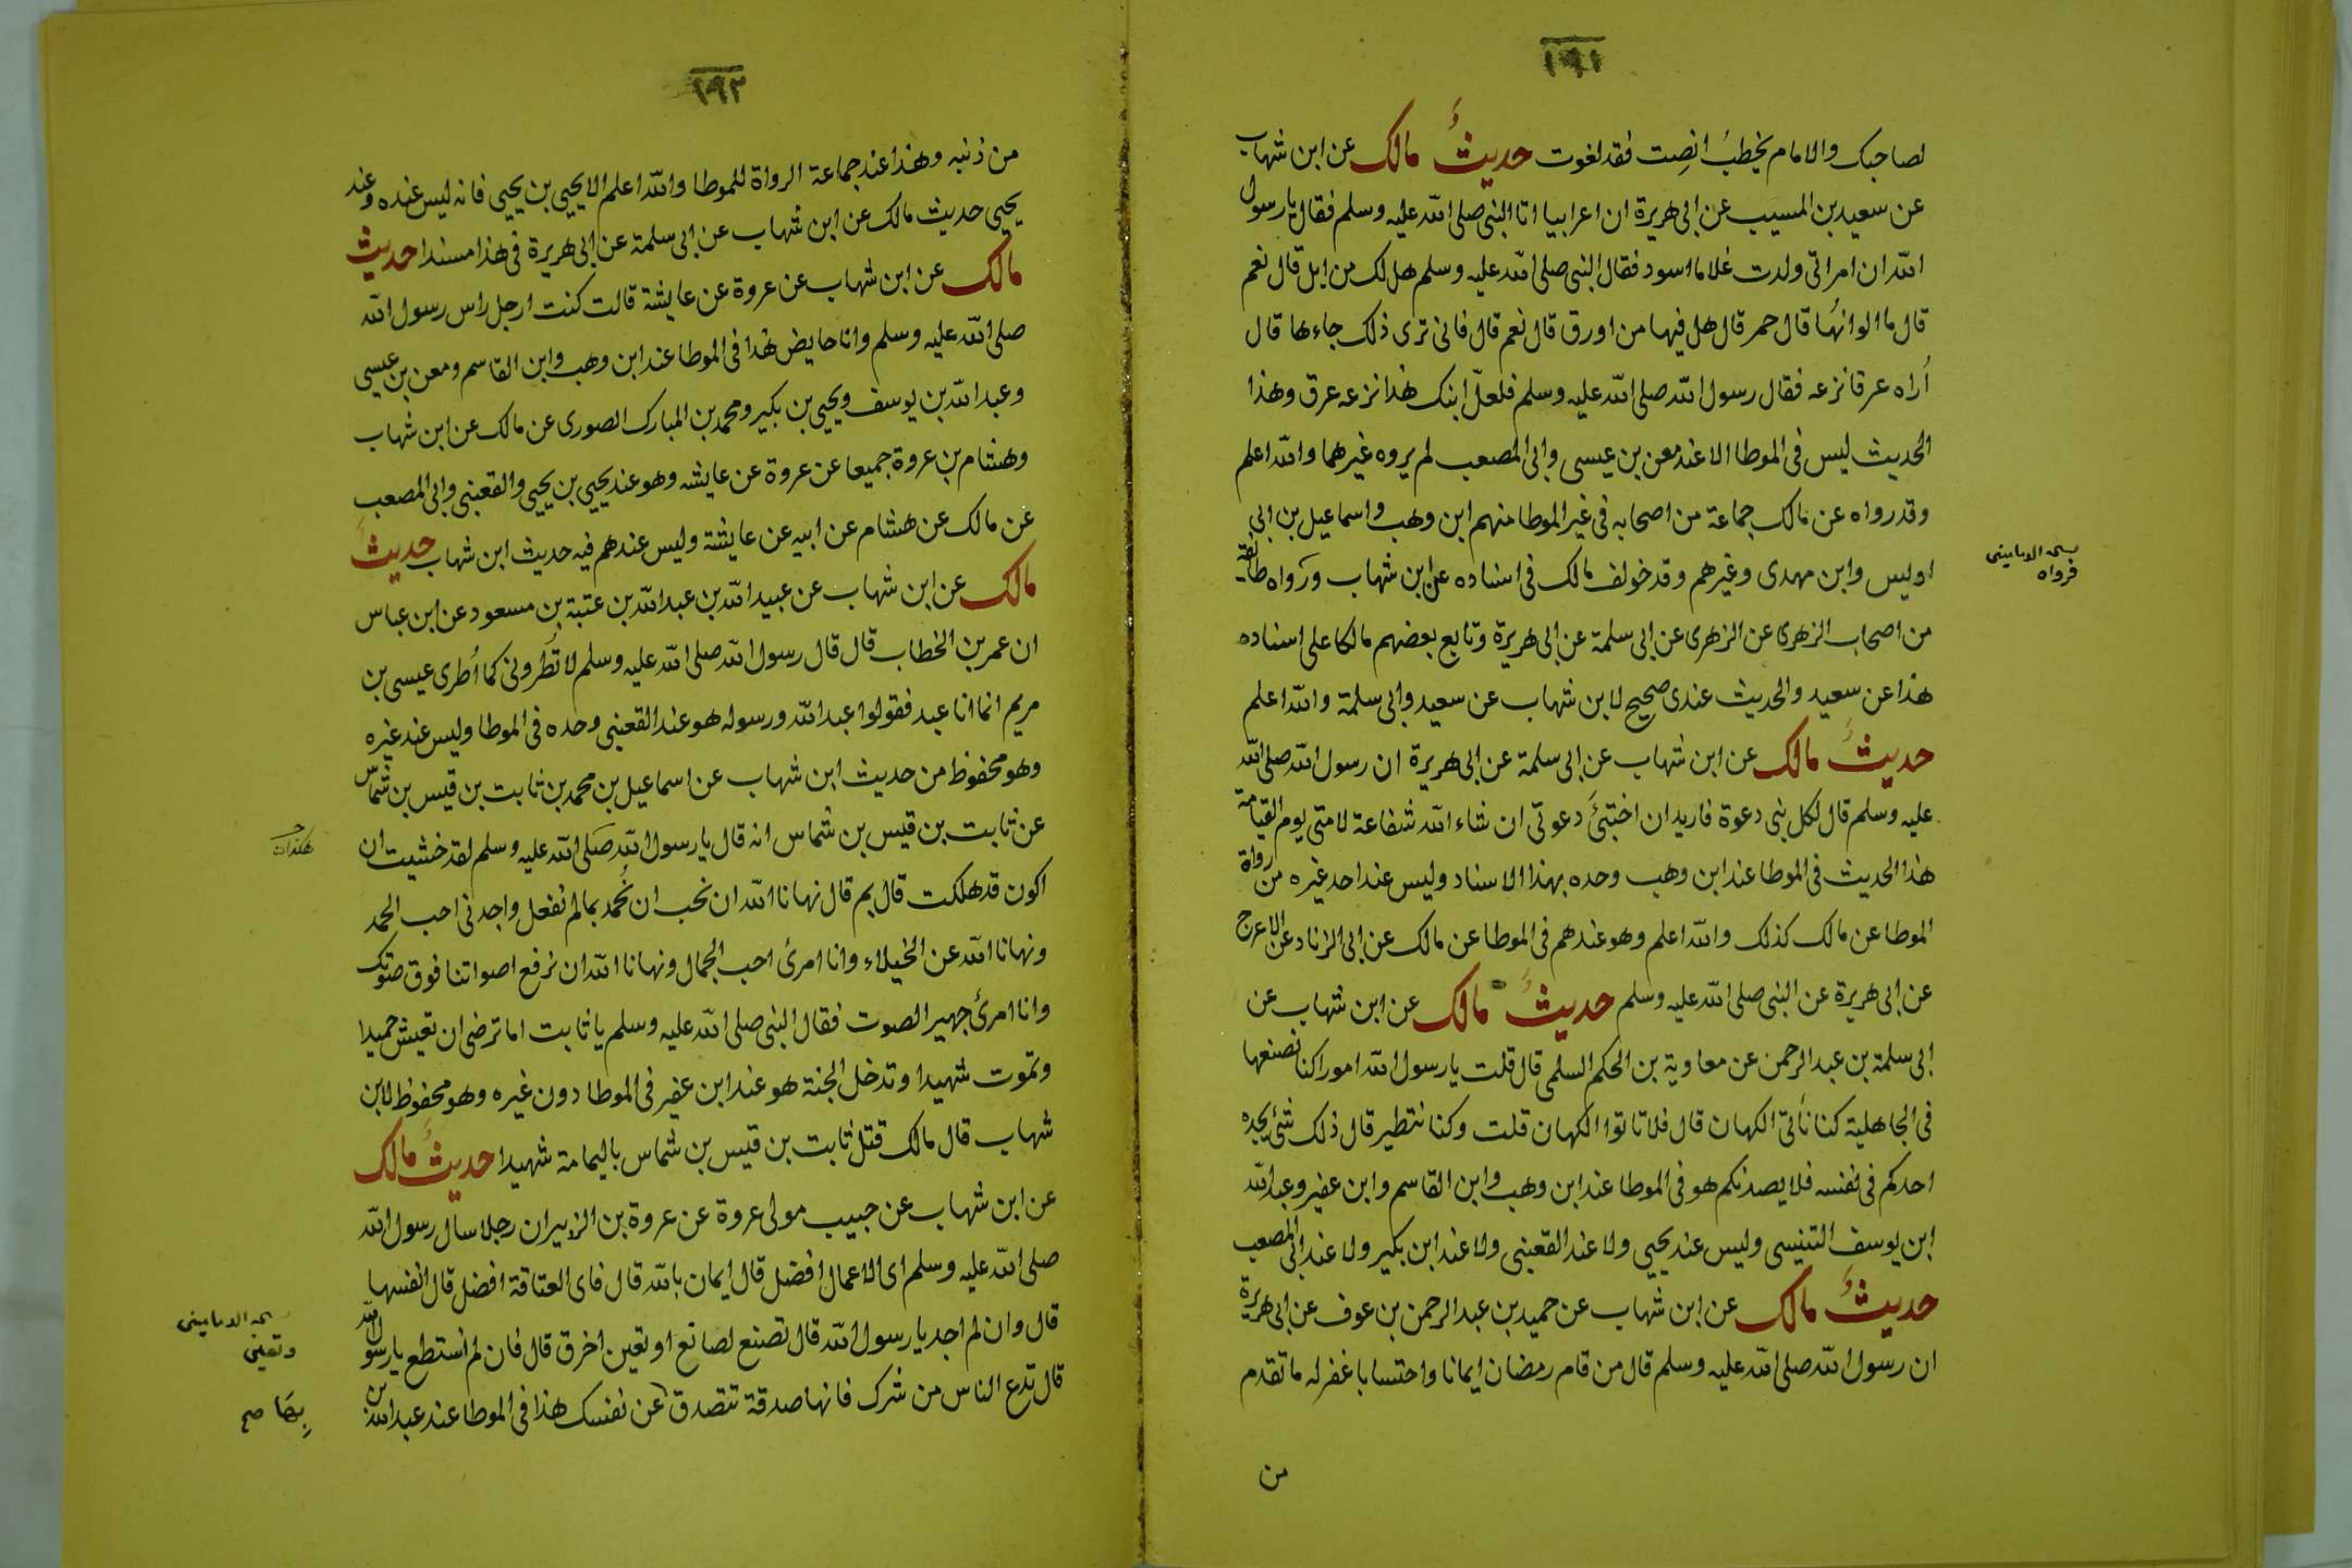 ١٩١
لصاحبك والامام يخطبُ انصِت فقد لغوت حديثُ مالك عن ابن شهاب
عن سعيد بن المسيب عن ابى هريرة ان اعرابيا اتا النبى صلى الله عليه وسلم فقال يا رسول
الله ان امراتى ولدت غلاما اسود فقال النبى صلى الله عليه وسلم هل لك من ابل قال نعم
قال ما الوانهُا قال حمر قال هل فيها من اورق قال نعم قال فانى ترى ذلك جاءها قال
أُراه عرقا نزعه فقال رسول الله صلى الله عليه وسلم فلعلّ ابنك هذا نزعه عرق وهذا
الحديث ليس فى الموطا الا عند معن بن عيسى وابى المصعب لم يروه غيرهما والله اعلم
وقد رواه عن مالك جماعة من اصحابه فى غير الموطا منهم ابن وهب واسماعيل بن ابى
اويس وابن مهدى وغيرهم وقد خولف مالك فى اسناده عن ابن شهاب ورواه طائفة
فرواه
من اصحاب الزهرى عن الزهرى عن ابى سلمة عن ابى هريرة وتابع بعضهم مالكا على اسناده
هذا عن سعيد والحديث عندى صحيح لابن شهاب عن سعيد وابى سلمة والله اعلم
حديثُ مالك عن ابن شهاب عن ابى سلمة عن ابى هريرة ان رسول الله صلى الله
عليه وسلم قال لكل نبى دعوة فاريد ان اختبئَ دعوتى ان شاء الله شفاعة لامتى يوم القيامة
هذا الحديث فى الموطا عند ابن وهب وحده بهذا الاسناد وليس عند احد غيره من رواة
الموطا عن مالك كذلك والله اعلم وهو عندهم فى الموطا عن مالك عن ابى الزناد عن الاعرج
عن ابى هريرة عن النبى صلى الله عليه وسلم حديثُ مالك عن ابن شهاب عن
ابى سلمة بن عبد الرحمن عن معاوية بن الحكم السلمى قال قلت يا رسول الله امورا كنا نصنعها
فى الجاهلية كنا نأتى الكهان قال فلا تاتوا الكهان قلت وكنا نتطير قال ذلك شئ يجده
احدكم فى نفسه فلا يصدنكم هو فى الموطا عند ابن وهب وابن القاسم وابن عفير وعبد الله
ابن يوسف التنيسى وليس عند يحيى ولا عند القعنبى ولا عند ابن بكير ولا عند ابى المصعب
حديثُ مالك عن ابن شهاب عن حميد بن عبد الرحمن بن عوف عن ابى هريرة
ان رسول الله صلى الله عليه وسلم قال من قام رمضان ايمانا واحتسابا غفر له ما تقدم
من
١٩٢
من ذنبه وهذا عند جماعة الرواة للموطا والله اعلم الا يحيى بن يحيى فانه ليس عنده وعند
يحيى حديث مالك عن ابن شهاب عن ابى سلمة عن ابى هريرة فى هذا مسندا حديث
مالك عن ابن شهاب عن عروة عن عايشة قالت كنت ارجل راس رسول الله
صلى الله عليه وسلم وانا حايض هذا فى الموطا عند ابن وهب وابن القاسم ومعن بن عيسى
وعبد الله بن يوسف ويحيى بن بكير ومحمد بن المبارك الصورى عن مالك عن ابن شهاب
وهشام بن عروة جميعا عن عروة عن عايشه وهو عند يحيى بن يحيى والقعنبى وابى المصعب
عن مالك عن هشام عن ابيه عن عايشة وليس عندهم فيه حديث ابن شهاب حديثُ
مالك عن ابن شهاب عن عبيد الله بن عبد الله بن عتبة بن مسعود عن ابن عباس
ان عمر بن الخطاب قال قال رسول الله صلى الله عليه وسلم لا تُطرونى كما أُطرى عيسى بن
مريم انما انا عبد فقولوا عبد الله ورسوله هو عند القعنبى وحده فى الموطا وليس عند غيره
وهو محفوظ من حديث ابن شهاب عن اسماعيل بن محمد بن ثابت بن قيس بن شماس
عن ثابت بن قيس بن شماس انه قال يا رسول الله صلى الله عليه وسلم لقد خشيت ان
اكون قد هلكت قال بم قال نهانا الله ان نحب ان نُحمد بما لم نفعل واجدنى احب الحمد
ونهانا الله عن الخيلاء وانا امرئ احب الجمال ونهانا الله ان نرفع اصواتنا فوق صوتك
وانا امرئ جهير الصوت فقال النبى صلى الله عليه وسلم يا ثابت اما ترضى ان تعيش حميدا
وتموت شهيدا وتدخل الجنة هو عند ابن عفير فى الموطا دون غيره وهو محفوظ لابن
شهاب قال مالك قتل ثابت بن قيس بن شماس باليمامة شهيدا حديثُ مالك
عن ابن شهاب عن حبيب مولى عروة عن عروة بن الزبير ان رجلا سال رسول الله
صلى الله عليه وسلم اى الاعمال افضل قال ايمان بالله قال فاى العتاقة افضل قال انفسها
قال وان لم اجد يا رسول الله قال تصنع لصانع او تعين اخرق قال فان لم استطع يا رسول الله
وتعين
قال تدع الناس من شرك فانها صدقة تتصدق عن نفسك هذا فى الموطا عند عبد الله بن
بها صح